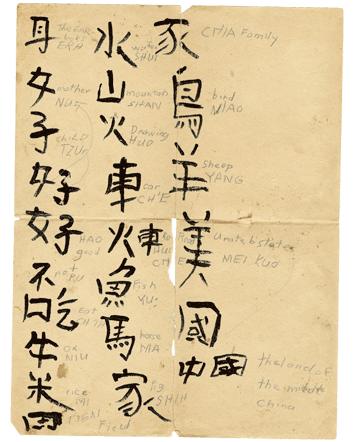 耳
ERH
女
mother
子
child
好
好
HAO
good
不
not
PU
吃
Eat
牛
ox
NIU
米
rice
MI
田
Field
水
water
SHUI
山
mountain
SHAN
火
HUO
車
car
CH'E
火車
魚
Fish
YU
馬
horse
MA
家
pig
SHIH
豕
CHIA Family
鳥
bird
NIAO
羊
sheep
YANG
美
MEI KUO
國
中國
the land of
the middle
China